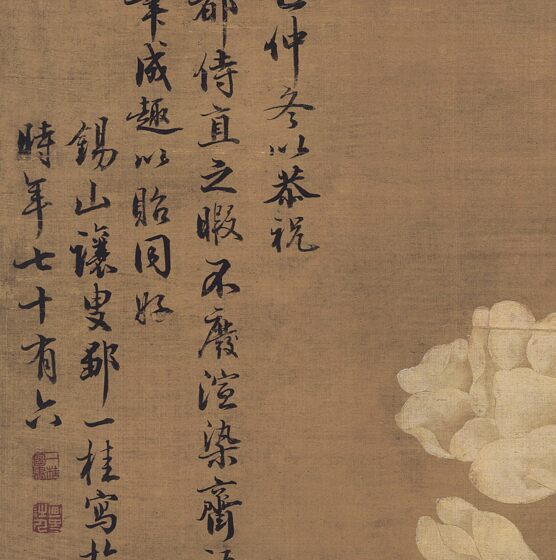 仲冬以恭祝
都侍直之暇不廢渲染齊
成趣以貽同好
錫山讓叟鄒一桂寫
時年七十有六